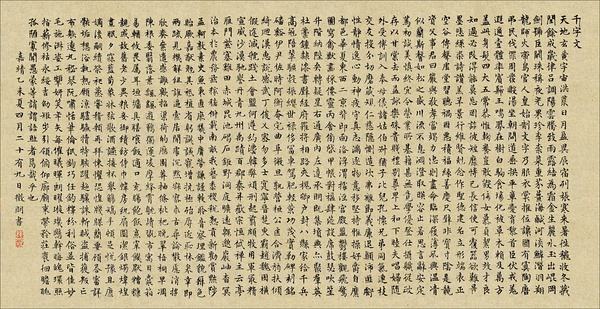 千字文
天地玄黃宇宙洪荒日月盈昃辰宿列張寒來暑往秋收冬藏
閏餘成歲律呂調陽雲騰致雨露結為霜金生麗水玉出崐岡
劍號巨闕珠稱夜光果珍李柰菜重芥薑海鹹河淡鱗潛羽翔
龍師火帝鳥官人皇始制文字乃服衣裳推位讓國有虞陶唐
弔民伐罪周發殷湯坐朝問道垂拱平章愛育黎首臣伏戎羌
遐邇壹體率賓歸王鳴鳳在樹白駒食場化被草木賴及萬方
蓋此身髮四大五常恭惟鞠養豈敢毀傷女慕貞絜男效才良
知過必改得能莫忘罔談彼短靡恃己長信使可覆器欲難量
墨悲絲染詩讚羔羊景行維賢克念作聖德建名立形端表正
空谷傳聲虛堂習聽禍因惡積福緣善慶尺璧非寶寸陰是競
資父事君曰嚴與敬孝當竭力忠則盡命臨深履薄夙興溫凊
似蘭斯馨如松之盛川流不息淵澄取映容止若思言辭安定
篤初誠美慎終宜令榮業所基籍甚無竟學優登仕攝職從政
存以甘棠去而益詠樂殊貴賤禮別尊卑上和下睦夫唱婦隨
外受傅訓入奉母儀諸姑伯叔猶子比兒孔懷兄弟同氣連枝
交友投分切磨箴規仁慈隱惻造次弗離節義廉退顛沛匪虧
性靜情逸心動神疲守真志滿逐物意移堅持雅操好爵自縻
都邑華夏東西二京背邙面洛浮渭據涇宮殿盤鬱樓觀飛驚
圖寫禽獸畫彩仙靈丙舍傍啟甲帳對楹肆筵設席鼓瑟吹笙
升階納陛弁轉疑星右通廣內左達承明既集墳典亦聚群英
杜稾鍾隸漆書壁經府羅將相路夾槐卿戶封八縣家給千兵
高冠陪輦驅轂振纓世祿侈富車駕肥輕策功茂實勒碑刻銘
磻溪伊尹佐時阿衡奄宅曲阜微旦孰營桓公匡合濟弱扶傾
綺迴漢惠說感武丁俊乂密勿多士寔寧晉楚更霸趙魏困橫
假途滅虢踐土會盟何遵約法韓弊煩刑起翦頗牧用軍最精
宣威沙漠馳譽丹青九州禹跡百郡秦并嶽宗恒岱禪主云亭
雁門紫塞雞田赤城昆池碣石鉅野洞庭曠遠緜邈巖岫杳冥
治本於農務茲稼穡俶載南畝我藝黍稷稅熟貢新勸賞黜陟
孟軻敦素史魚秉直庶幾中庸勞謙謹敕聆音察理鑑貌辨色
貽厥嘉猷勉其祗植省躬譏誡寵增抗極殆辱近恥林皋幸即
兩疏見機解組誰逼索居閒處沉默寂寥求古尋論散慮逍遙
欣奏累遣慼謝歡招渠荷的歷園莽抽條枇杷晚翠梧桐早凋
陳根委翳落葉飄颻遊鵾獨運凌摩絳霄耽讀翫市寓目囊箱
易輶攸畏屬耳垣牆具膳餐飯適口充腸飽飫烹宰飢厭糟糠
親戚故舊老少異糧妾御績紡侍巾帷房紈扇圓潔銀燭煒煌
晝眠夕寐藍筍象牀弦歌酒讌接杯舉觴矯手頓足悅豫且康
嫡後嗣續祭祀烝嘗稽顙再拜悚懼恐惶牋牒簡要顧答審詳
骸垢想浴執熱願涼驢騾犢特駭躍超驤誅斬賊盜捕獲叛亡
布射遼丸嵇琴阮嘯恬筆倫紙鈞巧任釣釋紛利俗並皆佳妙
毛施淑姿工顰妍笑年矢每催羲暉朗曜璇璣懸斡晦魄環照
指薪修祜永綏吉劭矩步引領俯仰廊廟束帶矜莊徘徊瞻眺
孤陋寡聞愚蒙等誚謂語助者焉哉乎也
嘉靖乙未夏四月二十有九日徵明書